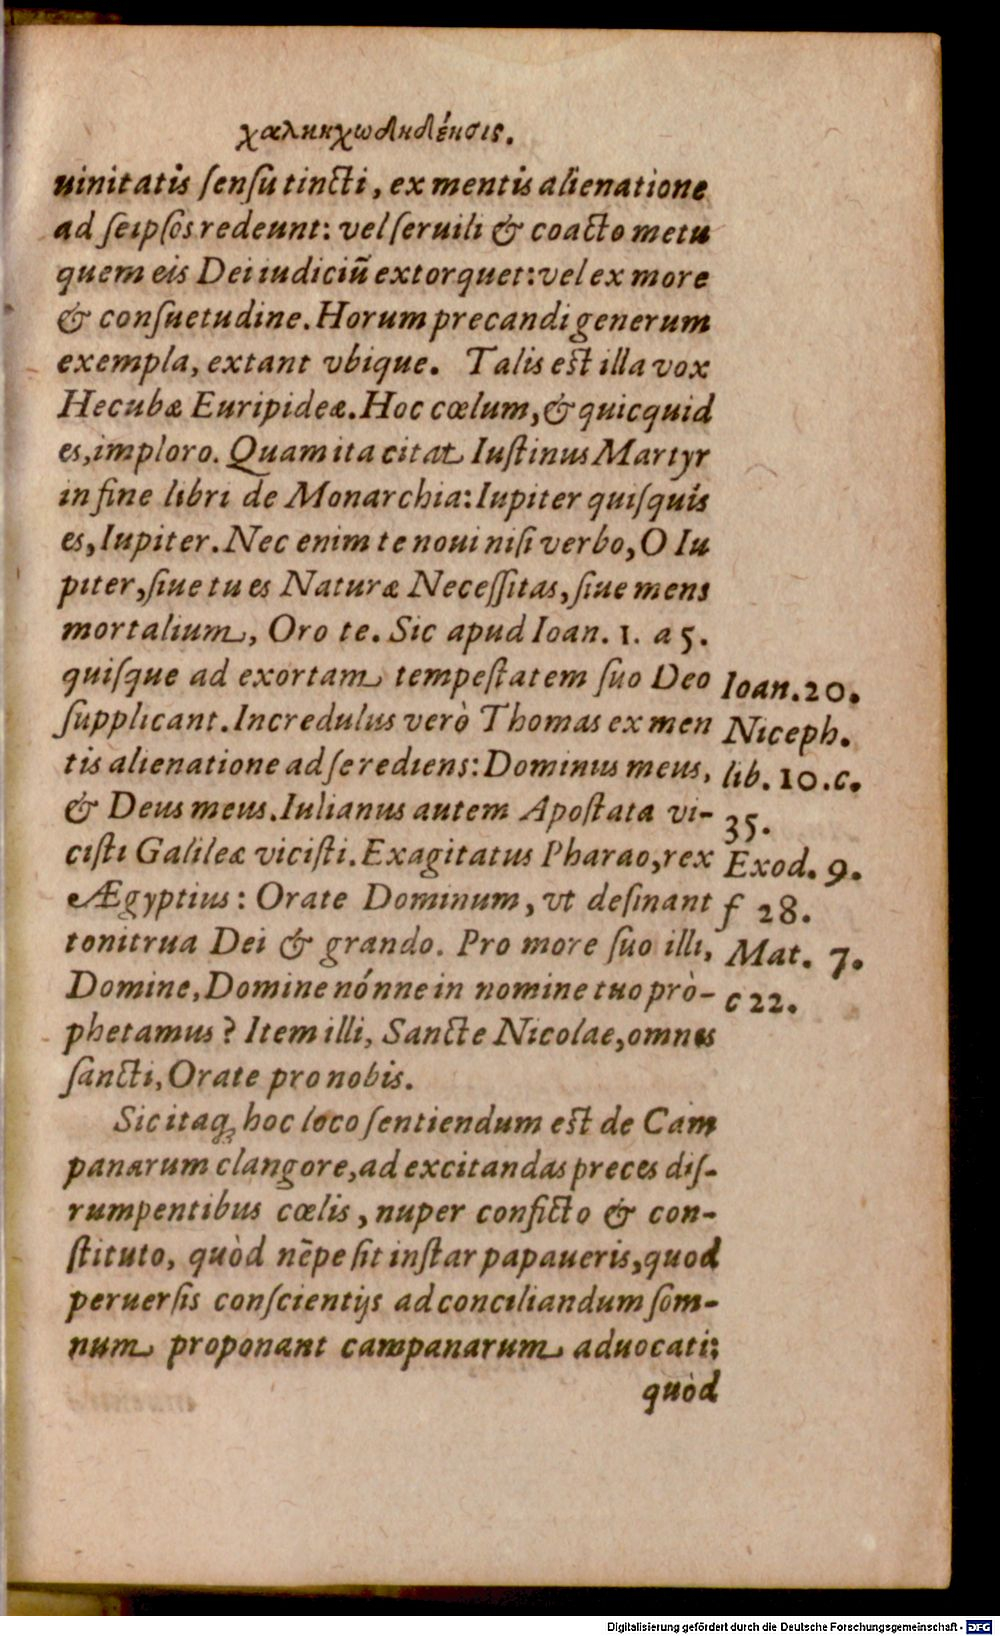 uinitatis ſenſu tincti, ex mentis alienatione
ad ſeipſos redeunt: vel ſeruili & coacto metu
quem eis Dei iudiciũ extorquet: vel ex more
& conſuetudine. Horum precandi generum
exempla, extant vbique. Talis eſt illa vox
Hecubæ Euripideæ. Hoc cœlum, & quicquid
es, imploro. Quam ita citat Iuſtinus Martyr
in fine libri de Monarchia: Iupiter quiſquis
es, Iupiter. Nec enim te noui niſi verbo, O Iu
piter, ſiue tu es Naturæ Neceſſitas, ſiue mens
mortalium, Oro te. Sic apud Ioan. 1. a 5.
quiſque ad exortam tempeſtatem ſuo Deo
ſupplicant. Incredulus verò Thomas ex men
tis alienatione ad ſe rediens: Dominus meus,
& Deus meus. Iulianus autem Apoſtata vi-
ciſti Galilee viciſti. Exagitatus Pharao, rex
Ægyptius: Orate Dominum, vt deſinant
tonitrua Dei & grando. Pro more ſuo illi,
Domine, Domine nónne in nomine tuo pro-
phetamus? Item illi, Sancte Nicolae, omnes
ſancti, Orate pro nobis.
Ioan. 20.
Niceph.
lib. 10. c.
35.
Exod. 9.
f 28.
Mat. 7.
c 22.
Sic itaq; hoc loco ſentiendum eſt de Cam
panarum clangore, ad excitandas preces diſ-
rumpentibus cœlis, nuper conficto & con-
ſtituto, quòd nẽpe ſit inſtar papaueris, quod
peruerſis conſcientijs ad conciliandum ſom-
num proponant campanarum aduocati:
quòd
Digitalisierung gefördert durch die Deutsche Forschungsgemeinschaft - DFG